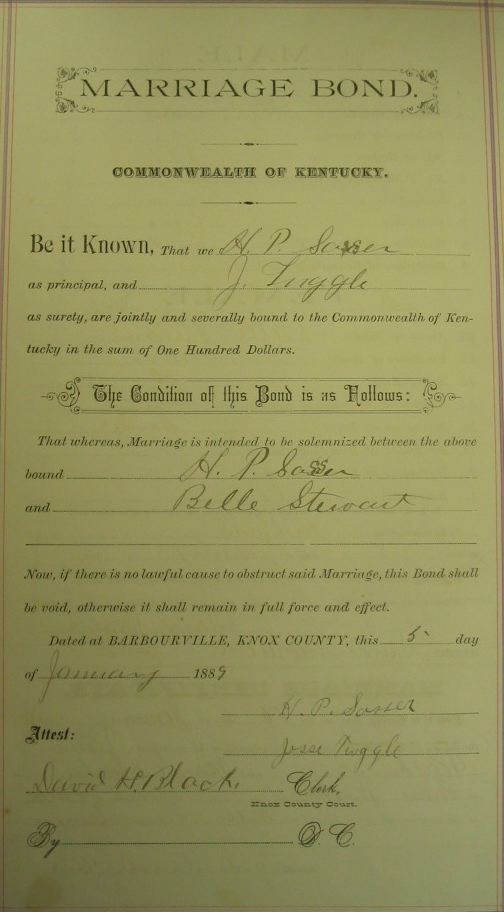 MARRIAGE BOND.
COMMONWEALTH OF KENTUCKY.
Be it Known, That we H. P. Sasser
as principal, and J. Tuggle
as surety, are jointly and severally bound to the Commonwealth of Ken-
tucky in the sum of One Hundred Dollars.
The Condition of this Bond is as Follows:
That whereas, Marriage is intended to be solemnized between the above
bound H. P. Sasser
and Belle Stewart
Now, if there is no lawful cause to obstruct said Marriage, this Bond shall
be void, otherwise it shall remain in full force and effect.
Dated at BARBOURVILLE, KNOX COUNTY, this 5 day
of January 1889
H. P. Sasser
Attest:
Jesse Tuggle
David H. Black, Clerk,
Knox County Court.
By D. C.